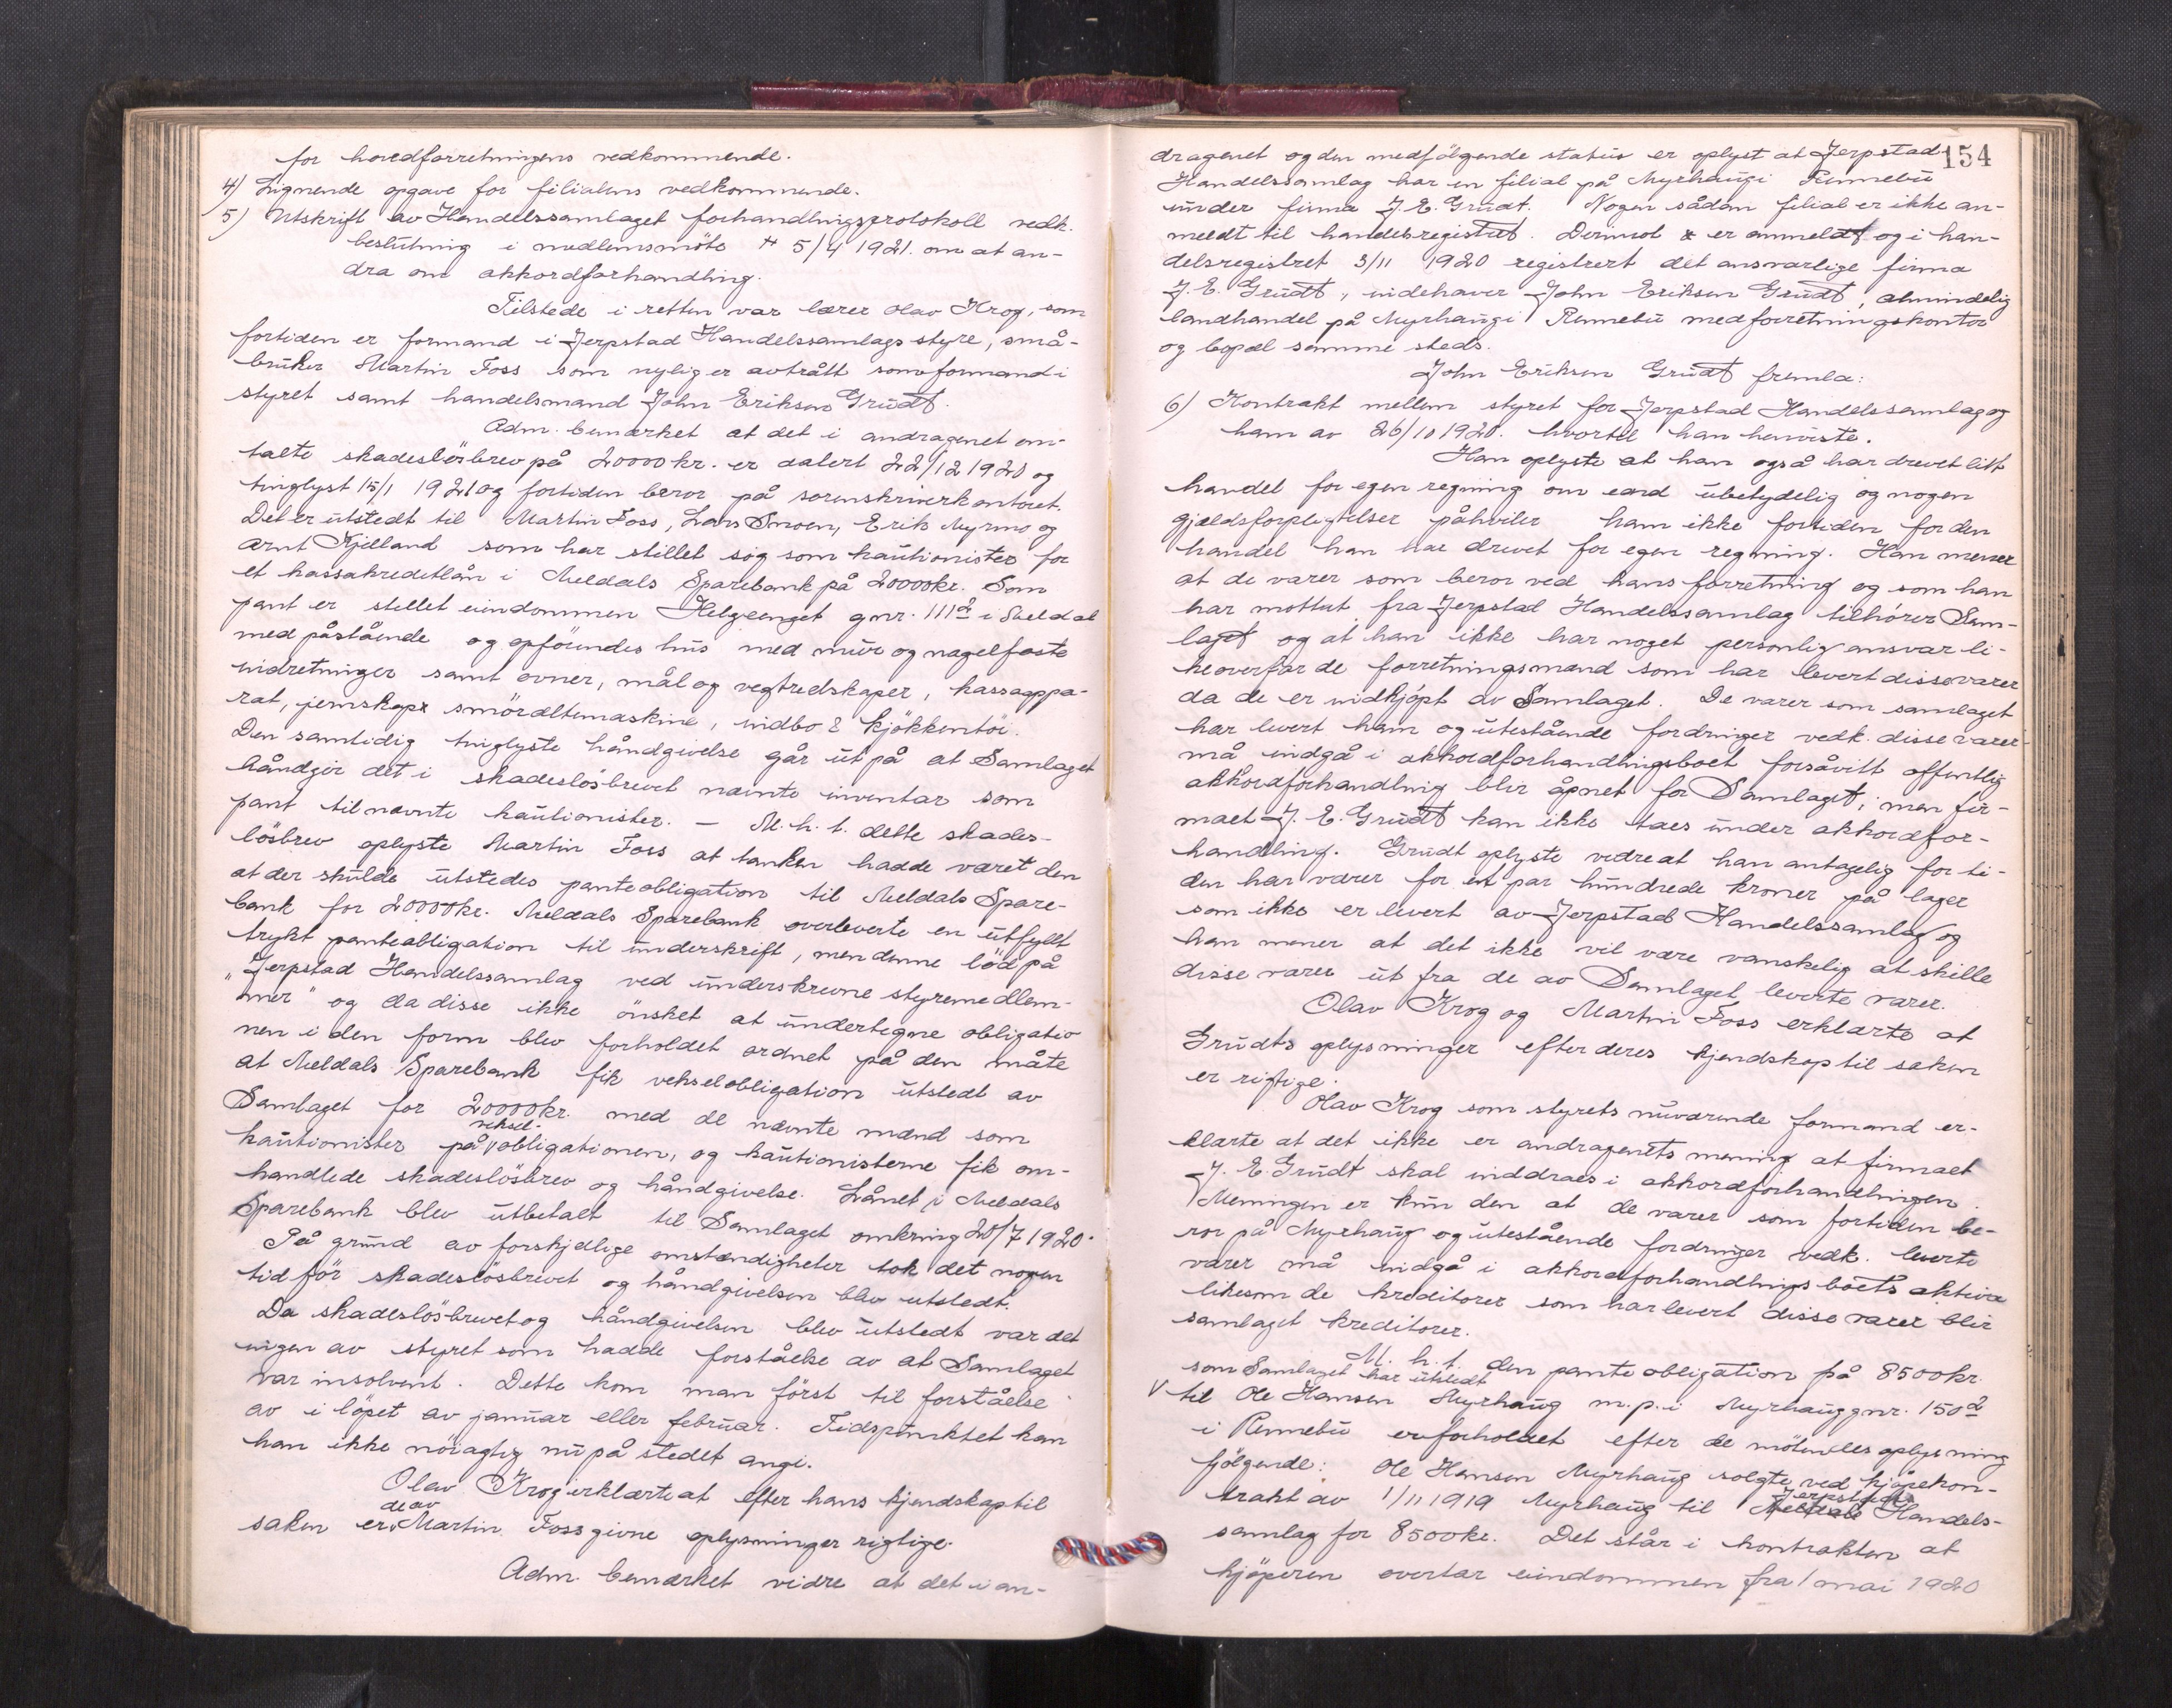 for hovedforretningens vedkommende.
4) Lignende opgave for filialens vedkommende.
5) Utskrift av Handelssamlaget forhandlingsprotokoll vedk.
beslutning i medlemsmöte 5/4 1921. om at an-
dra om akkordforhandling.
Tilstede i retten var lærer Olav Krog, som
fortiden er formand i Jerpstad Handelssamlags styre, små-
bruker Martin Foss som nylig er avtrått som formand i
styret samt handelsmand John Eriksen Grudt.
Adm. bemerket at det i andragenet om-
talte skadeslösbrev på 20000 kr. er datert 22/12 1920 og
tinglyst 15/1 1921 og fortiden beror på sorenskriverkontoret.
Det er utstedt til Martin Foss, Lars Smoen, Erik Myrmo og
Arnt Kjelland som har stillet sig som kautionister for
et kassakreditlån i Meldals Sparebank på 20000 kr. Som
pant er stillet eiendommen Helgeenget gnr. 111 2 i Meldal
med påstående og opförendes hus med mur og nagelfaste
indretninger samt ovner, mål og vegtredskaper, kassaappa-
rat, jernskap smöræltemaskine, indbo & kjökkentöi.
Den samtidig tinglyste håndgivelse går ut på at Samlaget
håndgir det i skadeslösbrevet nævnte inventar som
pant til nævnte kautionister. — M.h.t. dette skades-
lösbrev oplyste Martin Foss at tanken hadde været den
at der skulde utstedes panteobligation til Meldals Spare-
bank for 20000 kr. Meldals Sparebank overleverte en utfyllt
trykt panteobligation til underskrift, men denne löd på
„Jerpstad Handelssamlag ved underskrevne styremedlem-
mer" og da disse ikke önsket at undertegne obligatio
nen i den form blev forholdet ordnet på den måte
at Meldals Sparebank fik vekselobligation utstedt av
Samlaget for 20000 kr. med de nævnte mænd som
veksel-
kautionister på obligationen, og kautionisterne fik om-
handlede skadeslösbrev og håndgivelse. Lånet i Meldals
Sparebank blev utbetalt til Samlaget omkring 20/7 1920.
På grund av forskjellige omstændigheter tok det nogen
tid för skadeslösbrevet og håndgivelsen blev utstedt.
Da skadeslösbrevet og håndgivelsen blev utstedt var det
ingen av styret som hadde forståelse av at Samlaget
var insolvent. Dette kom man först til forståelse
av i löpet av januar eller februar. Tidspunktet kan
han ikke nöiagtig nu på stedet angi.
Olav Krog erklærte at efter hans kjendskap til
de av
saken er Martin Foss givne oplysninger rigtige.
Adm. bemerket vidre at det i an-
154
dragenet og den medfölgende status er oplyst at Jerpstad
Handelssamlag har en filial på Myrhaug i Rennebu
under firma J. E. Grudt. Nogen sådan filial er ikke an-
meldt til handelsregistret. Derimot er anmeldt og i han-
delsregistret 3/11 1920 registrert det ansvarlige firma
J. E. Grudt, indehaver John Eriksen Grudt, almindelig
landhandel på Myrhaug i Rennebu med forretningskontor
og bopæl samme steds.
John Eriksen Grudt fremla:
6) Kontrakt mellem styret for Jerpstad Handelssamlag og
ham av 26/10 1920. hvortil han henviste.
Han oplyste at han også har drevet litt
handel for egen regning om end ubetydelig og nogen
gjældsforpligtelser påhviler ham ikke fortiden for den
handel han har drevet for egen regning. Han mener
at de varer som beror ved hans forretning og som han
har mottat fra Jerpstad Handelssamlag tilhörer Sam-
laget og at han ikke har noget personlig ansvar li-
keoverfor de forretningsmænd som har levert disse varer
da de er indkjöpt av Samlaget. De varer som samlaget
har levert ham og utestående fordringer vedk. disse varer
må indgå i akkordforhandlingsboet forsåvitt offentlig
akkordforhandling blir åpnet for Samlaget, men fir-
maet J. E. Grudt kan ikke taes under akkordfor-
handling. Grudt oplyste vidre at han antagelig for ti-
den har varer for et par hundrede kroner på lager
som ikke er levert av Jerpstad Handelssamlag og
han mener at det ikke vil være vanskelig at skille
disse varer ut fra de av Samlaget leverte varer.
Olav Krog og Martin Foss erklærte at
Grudts oplysninger efter deres kjendskap til saken
er rigtige.
Olav Krog som styrets nuværende formand er-
klærte at det ikke er andragenets mening at firmaet
J. E. Grudt skal inddraes i akkordforhandlingen.
Meningen er kun den at de varer som fortiden be-
ror på Myrhaug og utestående fordringer vedk. leverte
varer må indgå i akkordforhandlingsboets aktiva
likesom de kreditorer som har levert disse varer blir
samlaget kreditorer.
M. h. t. den panteobligation på 8500 kr.
som Samlaget har utstedt
til Ole Hansen Myrhaug m. p. i Myrhaug gnr. 150 2
i Rennebu er forholdet efter de mötendes oplysning
fölgende: Ole Hansen Myrhaug solgte ved kjöpekon-
Jerpstad
trakt av 1/11 1919 Myrhaug til Meldals Handels-
samlag for 8500 kr. Det står i kontrakten at
kjöperen overtar eiendommen fra 1 mai 1920